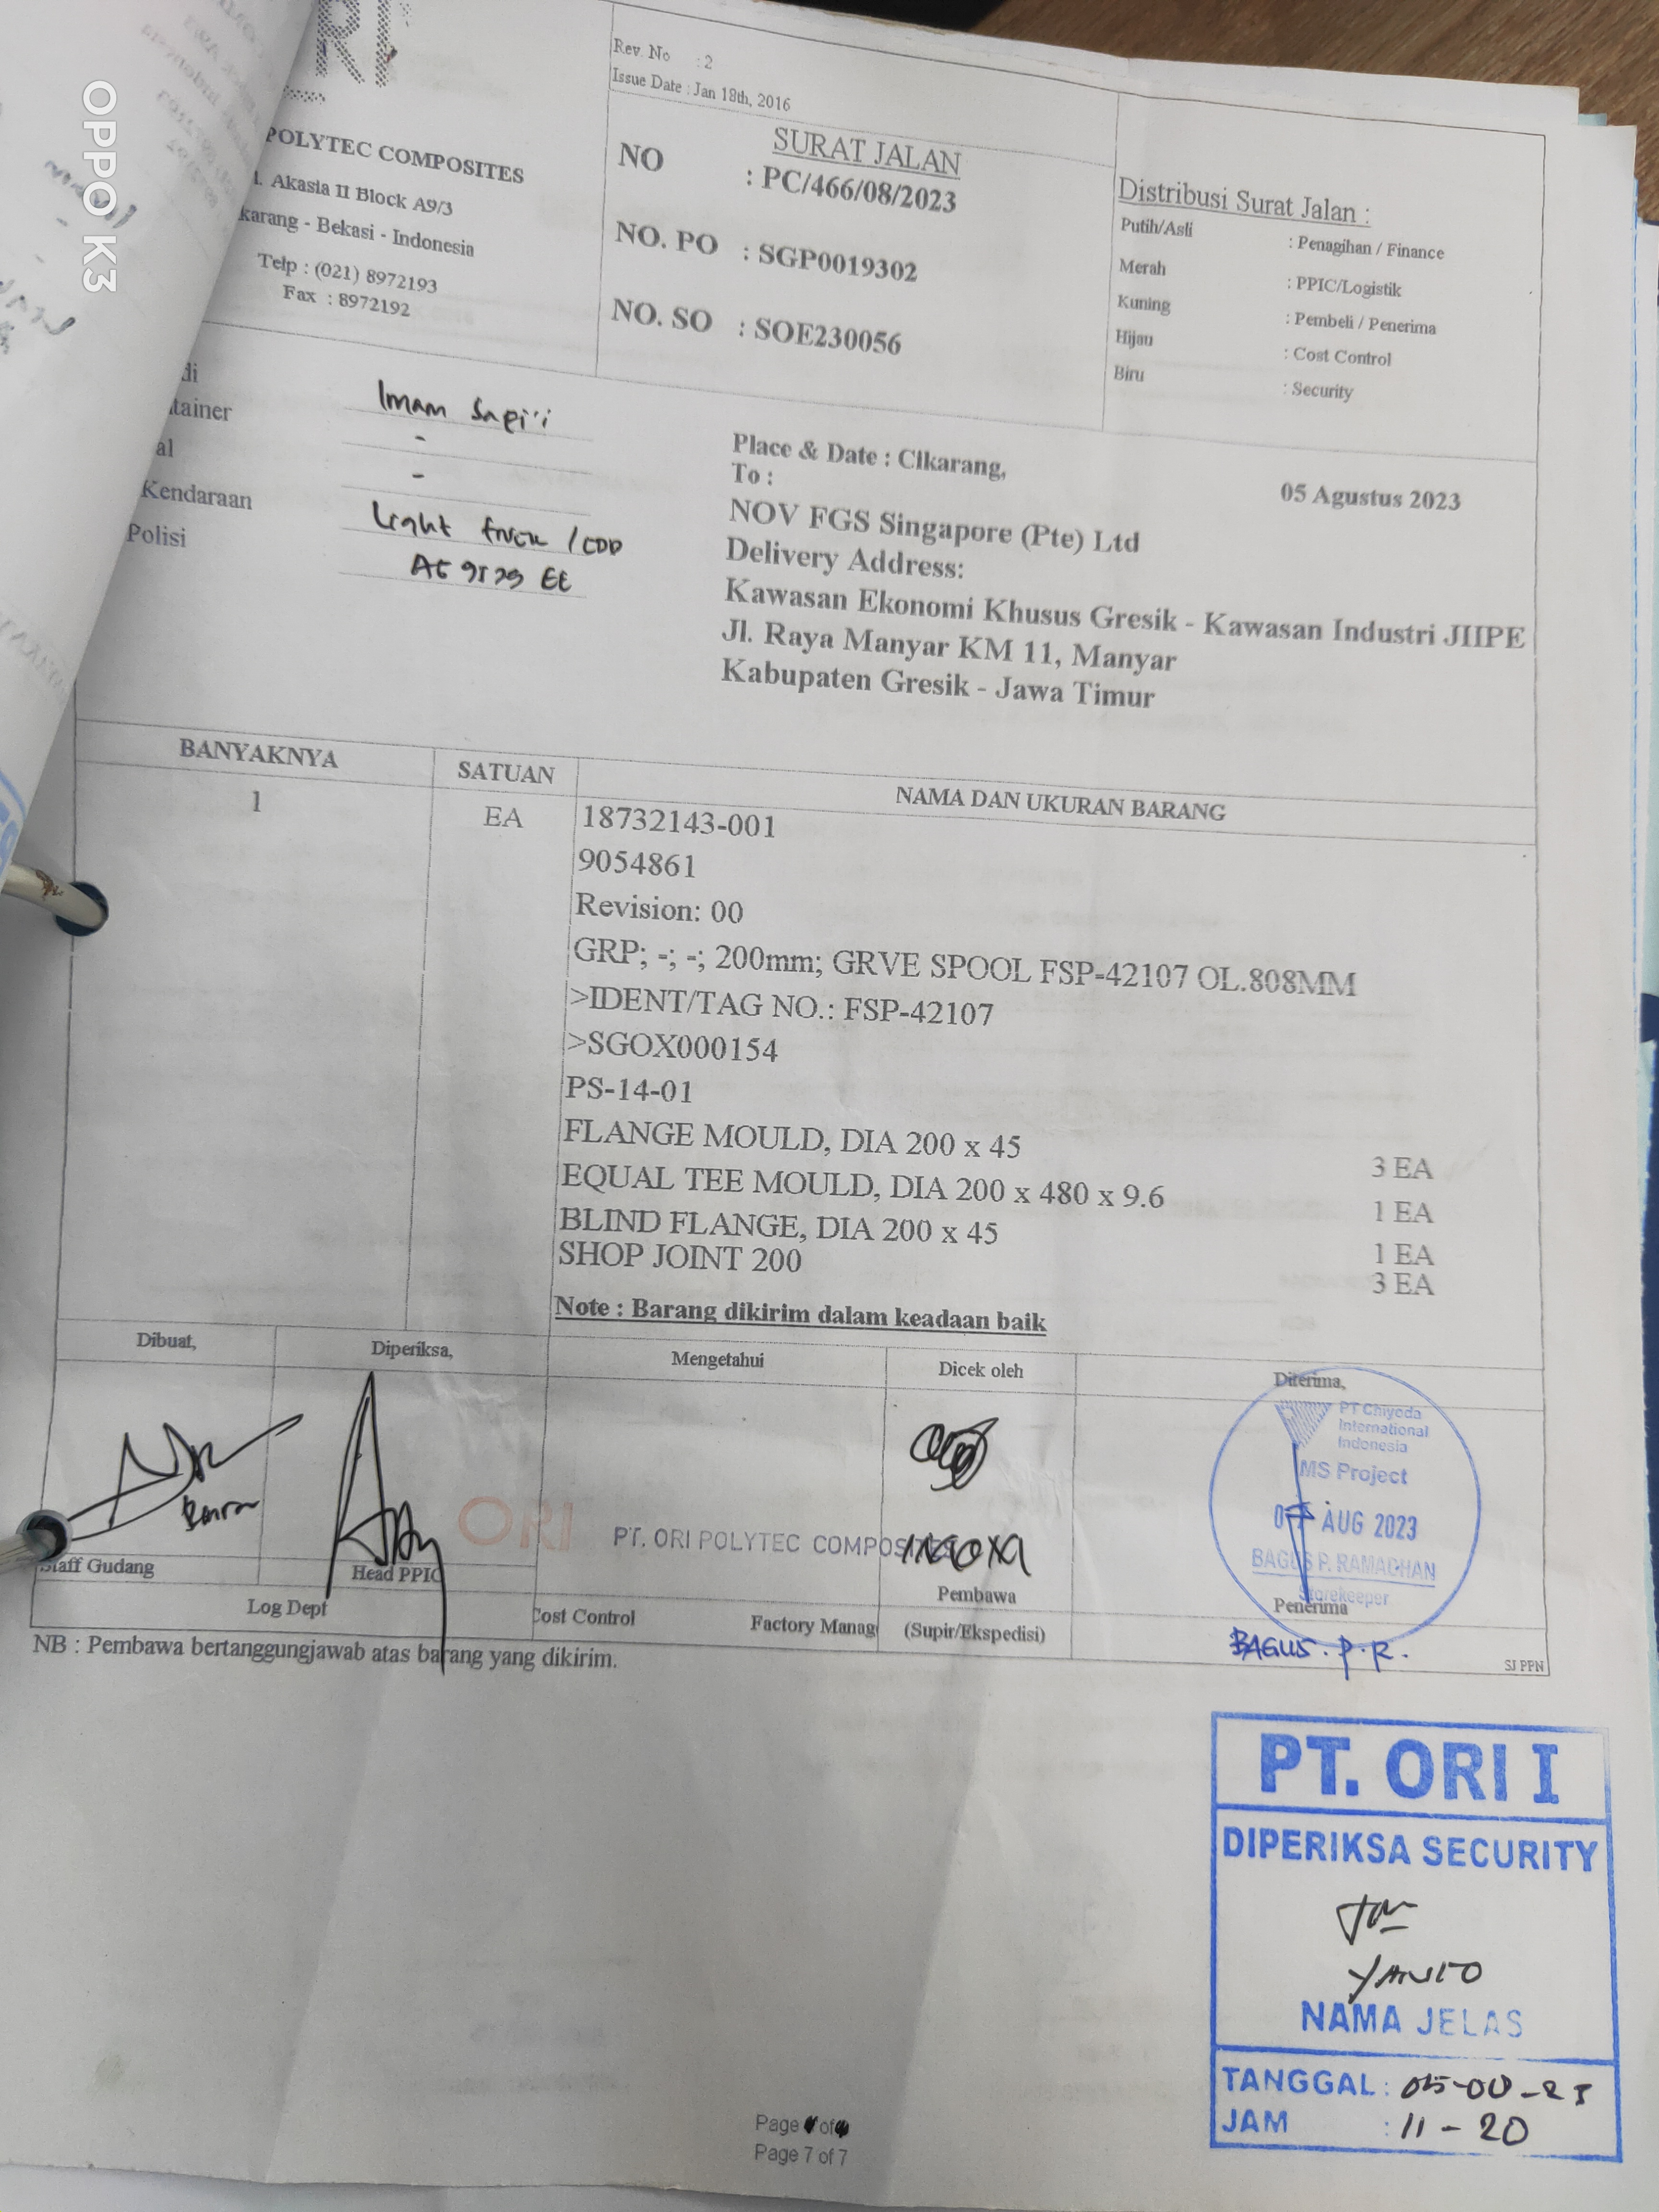 OPPO K3
RI
POLYTEC COMPOSITES
Akasia II Block A9/3
karang - Bekasi - Indonesia
Telp : (021) 8972193
Fax : 8972192
Rev. No : 2
Issue Date : Jan 18th, 2016
SURAT JALAN
NO : PC/466/08/2023
NO. PO : SGP0019302
NO. SO : SOE230056
Distribusi Surat Jalan :
Putih/Asli : Penagihan / Finance
Merah : PPIC/Logistik
Kuning : Pembeli / Penerima
Hijau : Cost Control
Biru : Security
di Imam Sapi'i
tainer -
al -
Kendaraan Light truck / CDD
Polisi EE
Place & Date : Cikarang, 05 Agustus 2023
To :
NOV FGS Singapore (Pte) Ltd
Delivery Address:
Kawasan Ekonomi Khusus Gresik - Kawasan Industri JIIPE
Jl. Raya Manyar KM 11, Manyar
Kabupaten Gresik - Jawa Timur
BANYAKNYA SATUAN NAMA DAN UKURAN BARANG
1 EA 18732143-001
9054861
Revision: 00
GRP; -; -; 200mm; GRVE SPOOL FSP-42107 OL.808MM
>IDENT/TAG NO.: FSP-42107
>SGOX000154
PS-14-01
FLANGE MOULD, DIA 200 x 45 3 EA
EQUAL TEE MOULD, DIA 200 x 480 x 9.6 1 EA
BLIND FLANGE, DIA 200 x 45 1 EA
SHOP JOINT 200 3 EA
Note : Barang dikirim dalam keadaan baik
Dibuat, Diperiksa, Mengetahui Dicek oleh Diterima,
PT Chiyoda
International
Indonesia
MS Project
AUG 2023
BAGUS P. RAMADHAN
Storekeeper
ORI PT. ORI POLYTEC COMPOS
Staff Gudang Head PPIC Pembawa Penerima
Log Dept Cost Control Factory Manag (Supir/Ekspedisi)
BAGUS. P. R.
NB : Pembawa bertanggungjawab atas barang yang dikirim.
SJ PPN
PT. ORI I
DIPERIKSA SECURITY
YANTO
NAMA JELAS
TANGGAL :
JAM : 11 - 20
Page of
Page 7 of 7